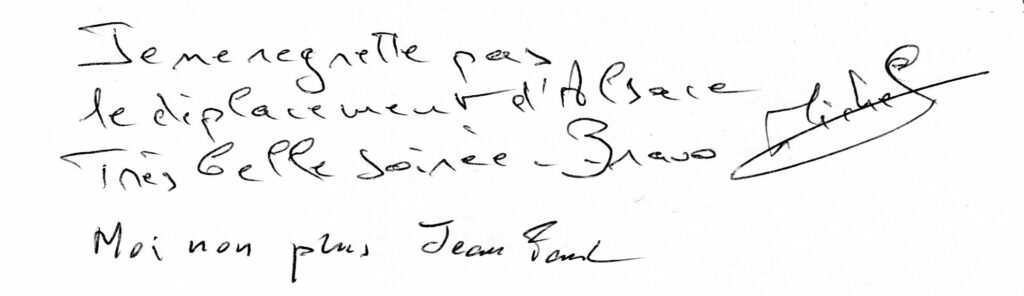 Je ne regrette pas
le déplacement d'Alsace
Très belle soirée - Bravo Michel
Moi non plus Jean Paul